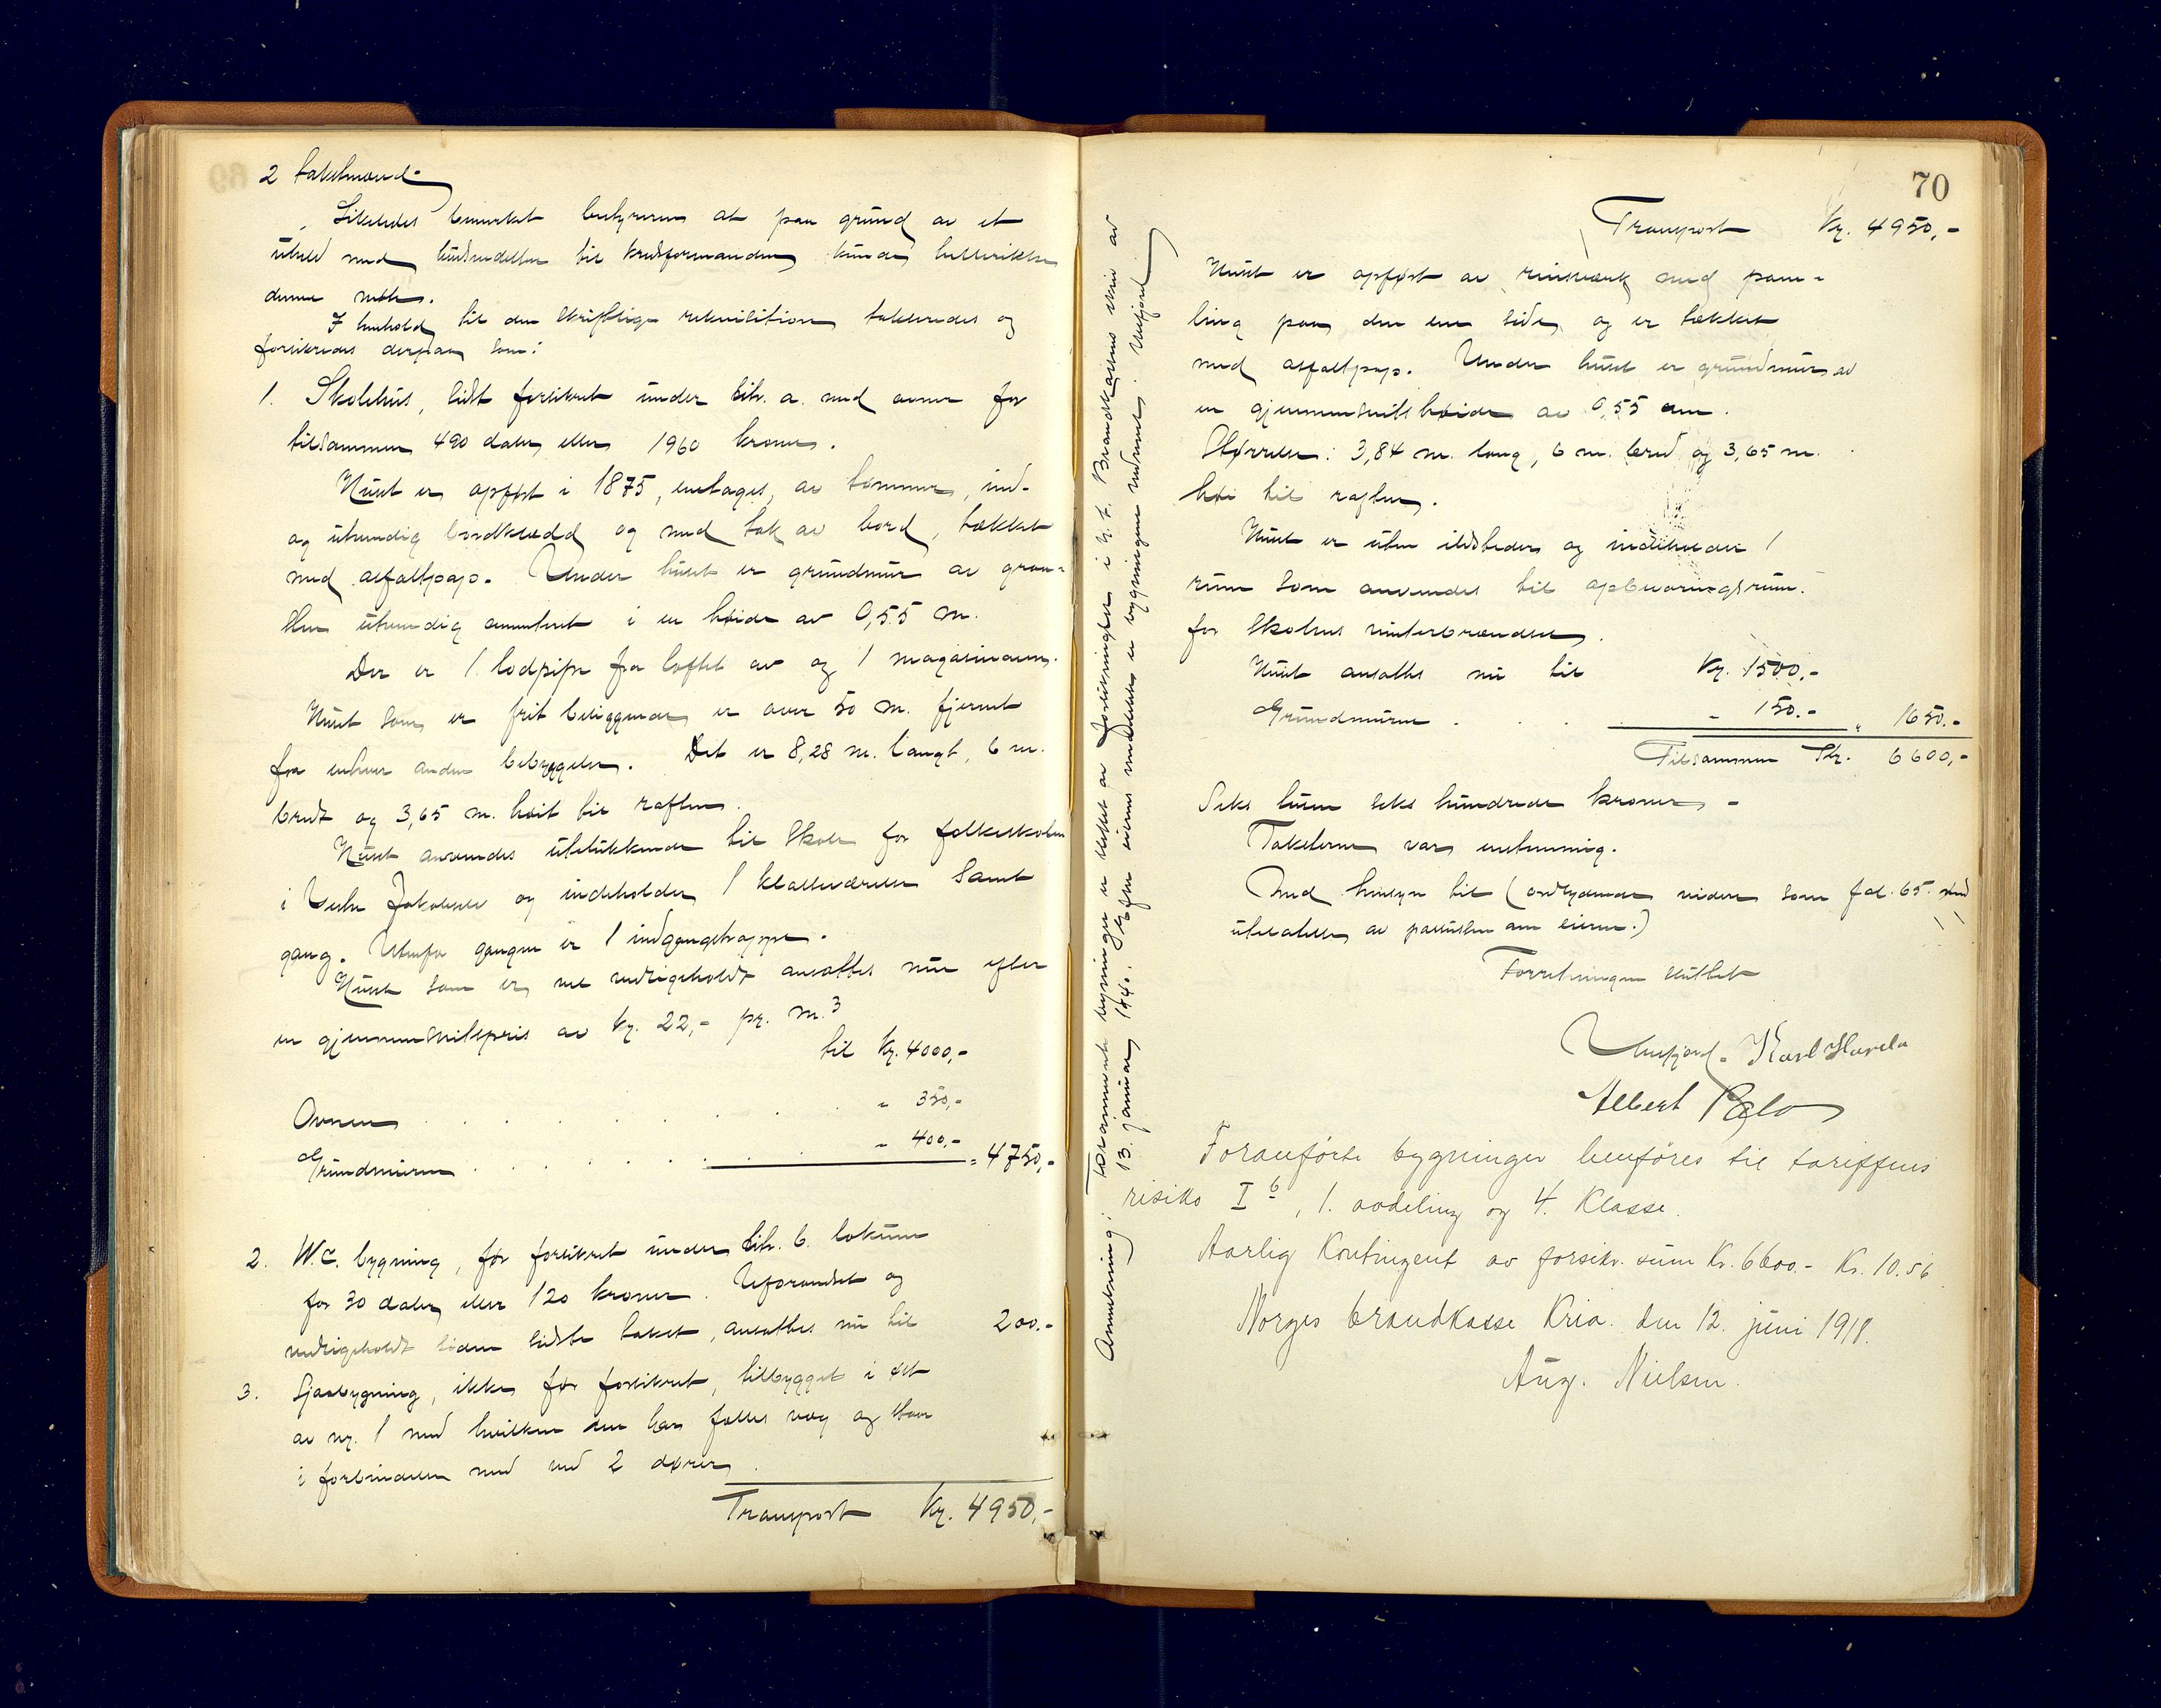 2 takstmænd.
Likeledes bemerket bestyreren at paa grund av et
uheld med tilsendelsen til kredsformanden kunde
denne møte.
I henhold til den skriftlige rekvisition takseredes og
forsikredes derpaa som:
1. Skolehus, sidst forsikret under litr. a. med ovner for
tilsammen 490 daler eller 1960 kroner.
Huset er opført i 1875, enetages, av tømmer, ind-
og utvendig bordklædd og med tak av bord, tækket
med asfaltpap. Under huset er grundmur av graa-
sten utvendig cementert i en høide av 0,55 m.
Der er 1 lodpipe fra loftet av og 1 magasinovn.
Huset som er frit beliggende er over 50 m. fjernet
fra enhver anden bebyggelse. Det er 8,28 m. langt, 6 m.
bredt og 3,65 m. høit til raften.
Huset anvendes utelukkende til skole for folkeskolen
i Vestre Jakobselv og indeholder 1 klasseværelse samt
gang. Utenfor gangen er 1 indgangstrappe.
Huset som er vel vedlikeholdt ansattes nu efter
en gjennemsnitspris av kr. 22,- pr. m.3
til kr. 4000,-
Ovnen . . . . . . . " 350,-
Grundmuren . . . . . . . " 400.- = 4750,-
2. W.C. bygning, før forsikret under litr. b. lokum
for 30 daler eller 120 kroner. Uforandret og
vedlikeholdt siden sidste takst, ansattes nu til 200.-
3. Sjaabygning, ikke før forsikret, tilbygget i øst
av nr. 1 med hvilken den har fælles væg og staar
i forbindelse med ved 2 dører.
Transport Kr. 4950,-
Anmerkning: Forannevnte bygninger er slettet av forsikringen i h.t. Brandkassens skriv av
13. januar 1940. Efter eierens meddelelse er bygningene nedrevet. Unsfjord
70
Transport Kr. 4950,-
Huset er opført av reisverk med pane-
ling paa den ene side og er tækket
med asfaltpap. Under huset er grundmur av
en gjennemsnitshøide av 0,55 cm.
Størrelse: 3,84 m. lang, 6 m. bred og 3,65 m.
høi til raften.
Huset er uten ildsteder og indeholder 1
rum som anvendes til opbevaringsrum
for skolens vinterbrændsel.
Huset ansattes nu til Kr. 1500,-
Grundmuren . . . " 150.- " 1650.-
Tilsammen Kr. 6600,-
Seks tusen seks hundrede kroner -
Taksterne var enstemmig.
Med hensyn til (ordlydende videre som fol. 65 med
utelatelse av passusen om eieren.)
Forretningen sluttet
Karl Havela
Albert Pelo
Foranførte bygninger henføres til tariffens
risiko I b, 1. avdeling og 4. Klasse.
Aarlig Kontingent av forsikr. sum Kr. 6600.- Kr. 10.56
Norges brandkasse Kria. den 12. juni 1918.
Aug. Nielsen.